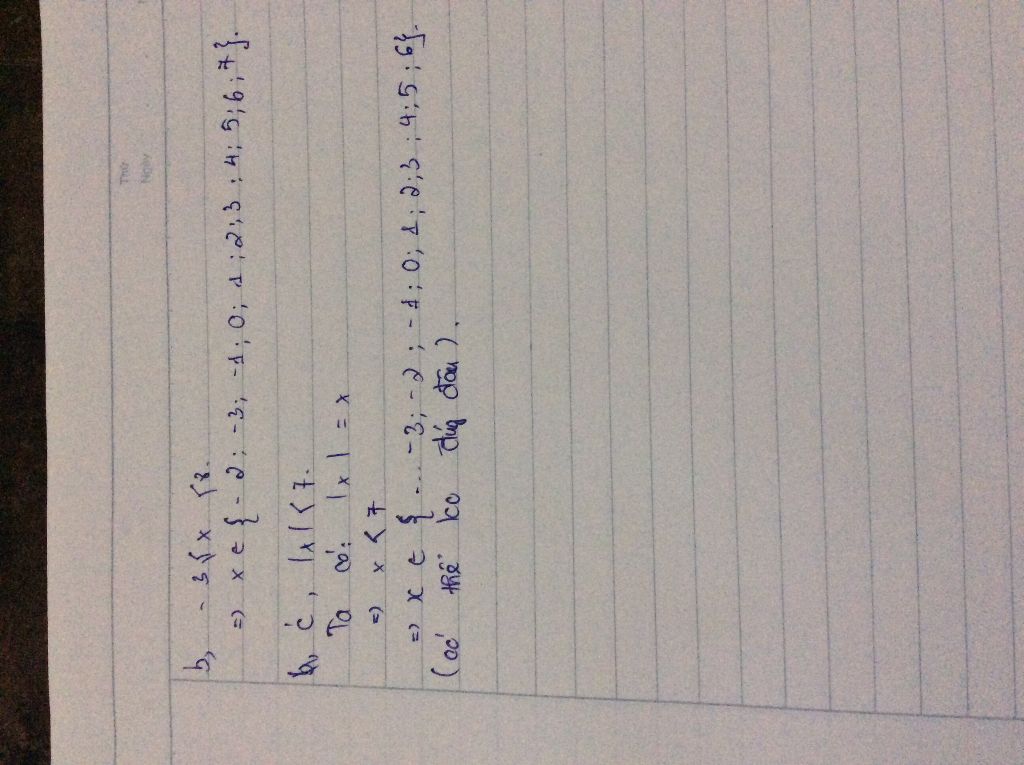 Thứ
Ngày
b, -3 ≤ x < 8.
=> x ∈ {-2; -3; -1; 0; 1; 2; 3; 4; 5; 6; 7}.
c, |x| < 7.
Ta có: |x| = x
=> x < 7
=> x ∈ {... -3; -2; -1; 0; 1; 2; 3; 4; 5; 6}.
(có thể ko đúg đâu).